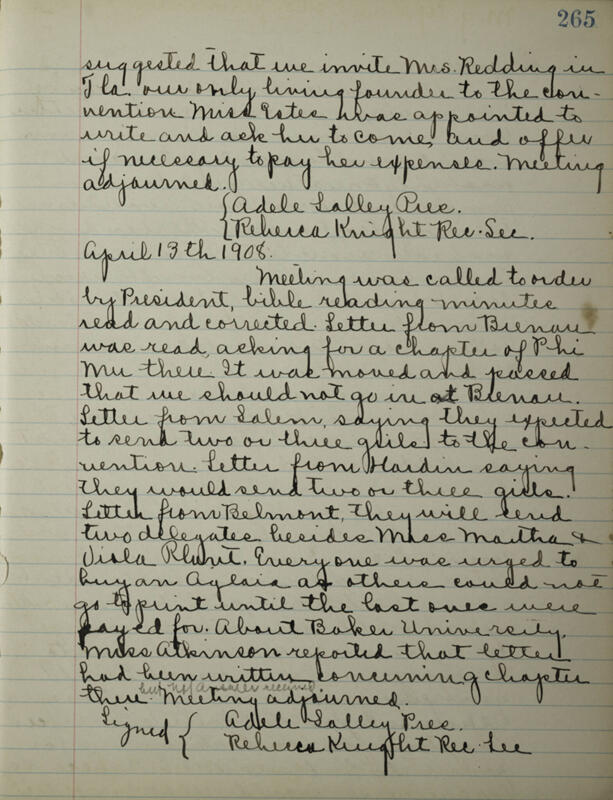 265
suggested that we invite Mrs. Redding in
Fla. our only living founder to the con-
vention Miss Estes was appointed to
write and ask her to come, and offer
if necessary to pay her expenses. Meeting
adjourned.
{Adele Salley Pres.
{Rebecca Knight Rec. Sec.
April 13th 1908.
Meeting was called to order
by President, bible reading minutes
read and corrected. Letter from Brenau
was read, asking for a chapter of Phi
Mu there. It was moved and passed
that we should not go in at Brenau.
Letter from Salem, saying they expected
to send two or three girls to the con-
vention. Letter from Hardin saying
they would send two or three girls.
Letter from Belmont, they will send
two delegates besides Miss Martha &
Viola Plant. Everyone was urged to
buy an Aglaia as others could not
go to print until the last ones were
payed for. About Baker University,
Miss Atkinson reported that letter
had been written concerning chapter
but no answer received.
there. Meeting adjourned.
Signed { Adele Salley Pres.
Rebecca Knight Rec. Sec